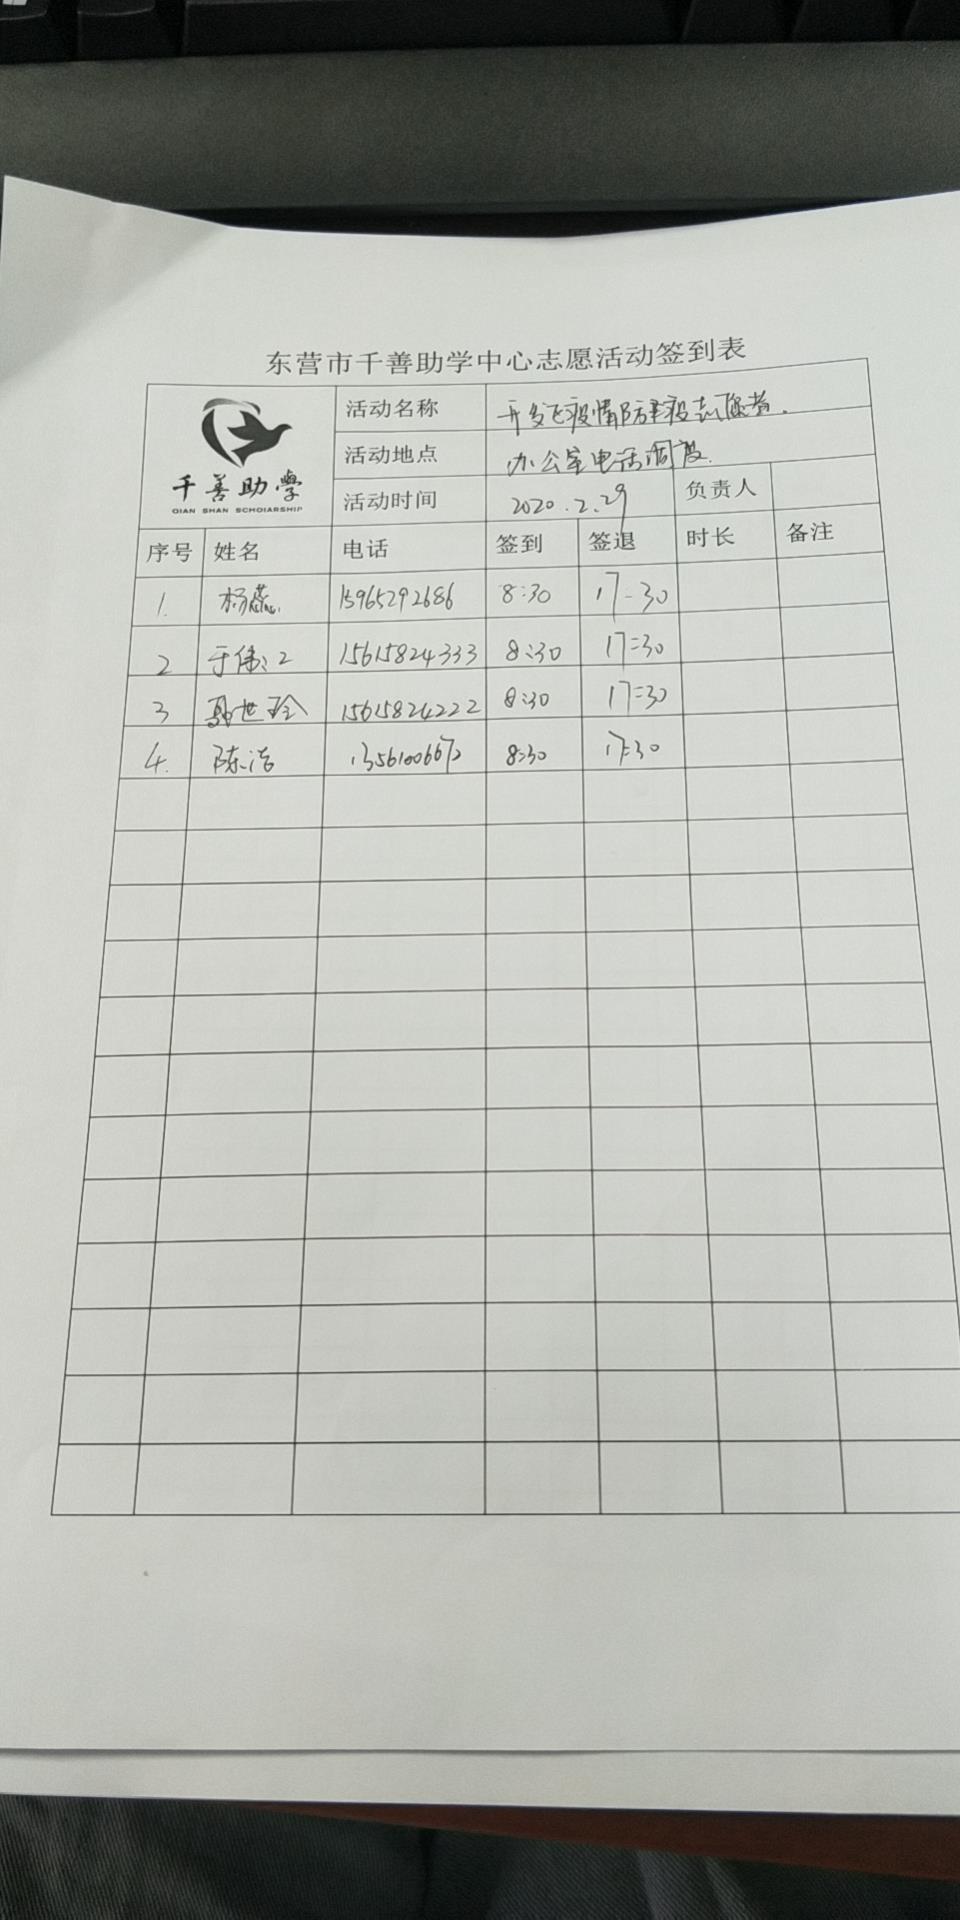 东营市千善助学中心志愿活动签到表
千善助學
QIAN SHAN SCHOLARSHIP
活动名称 疫情防 疫志愿者.
活动地点 办公室电话调度.
活动时间 2020.2.29 负责人
序号 姓名 电话 签到 签退 时长 备注
1. 杨蕊 15965292686 8:30 17-30
2 于伟 15615824333 8:30 17:30
3 世玲 15615824222 8:30 17:30
4. 陈洁 8:30 17:30